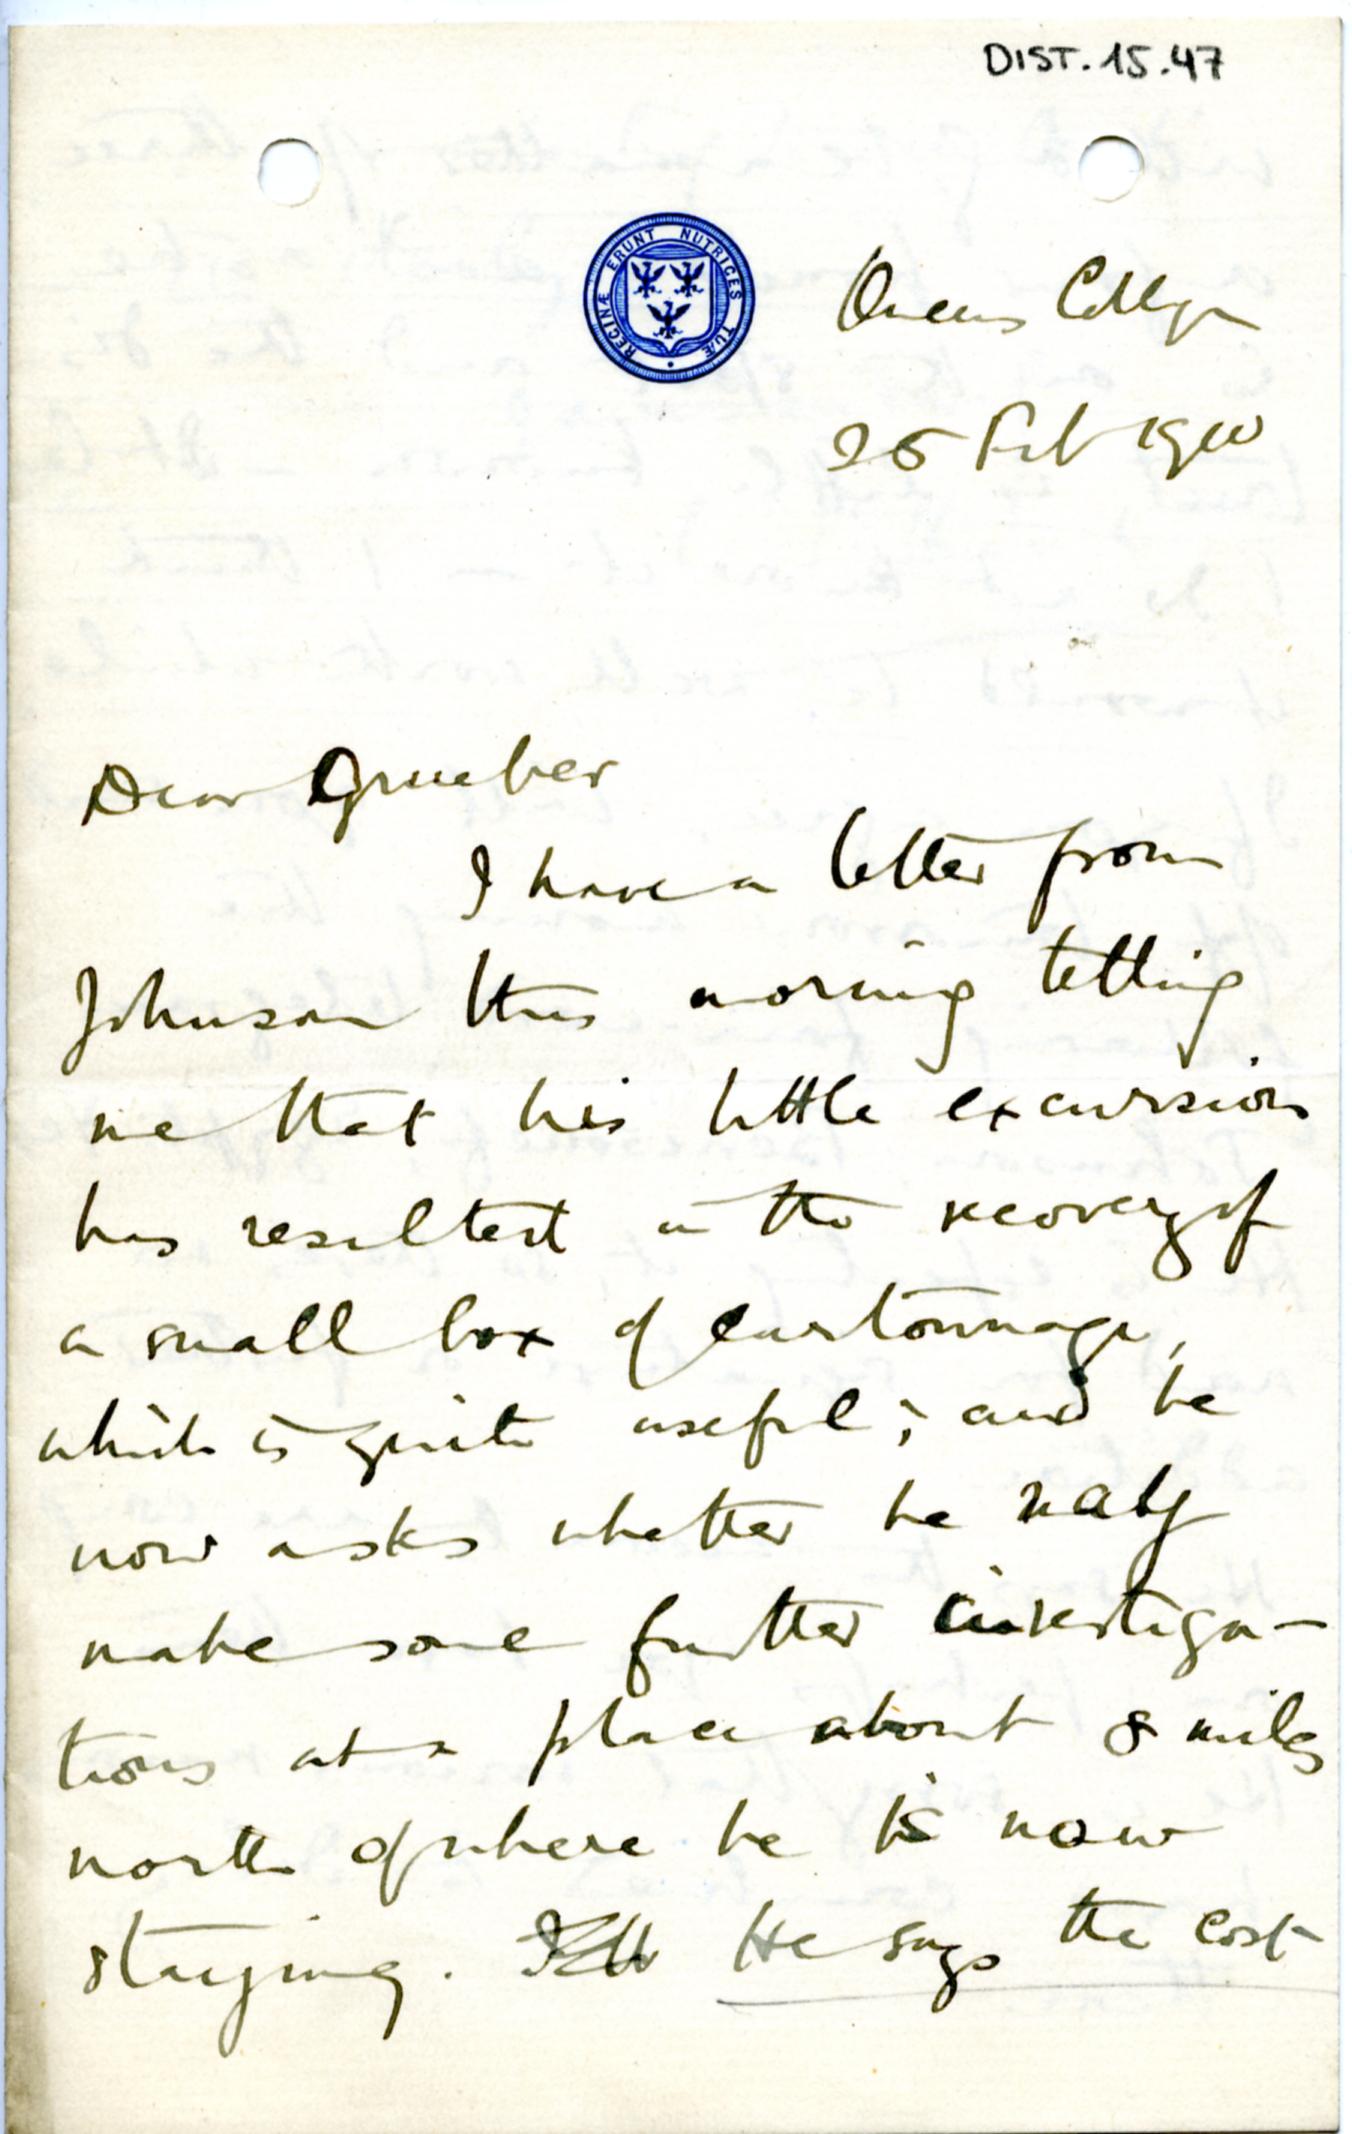 DIST.15.47
REGINÆ ERUNT NUTRICES TUÆ
Queens College
25 Feb 1910
Dear Grueber
I have a letter from
Johnson this morning telling
me that his little excursion
has resulted in the recovery of
a small box of cartonnage,
which is quite useful; and he
now asks whether he may
make some further investiga-
tions at a place about 8 miles
north of where he is now
staying. He says the cost